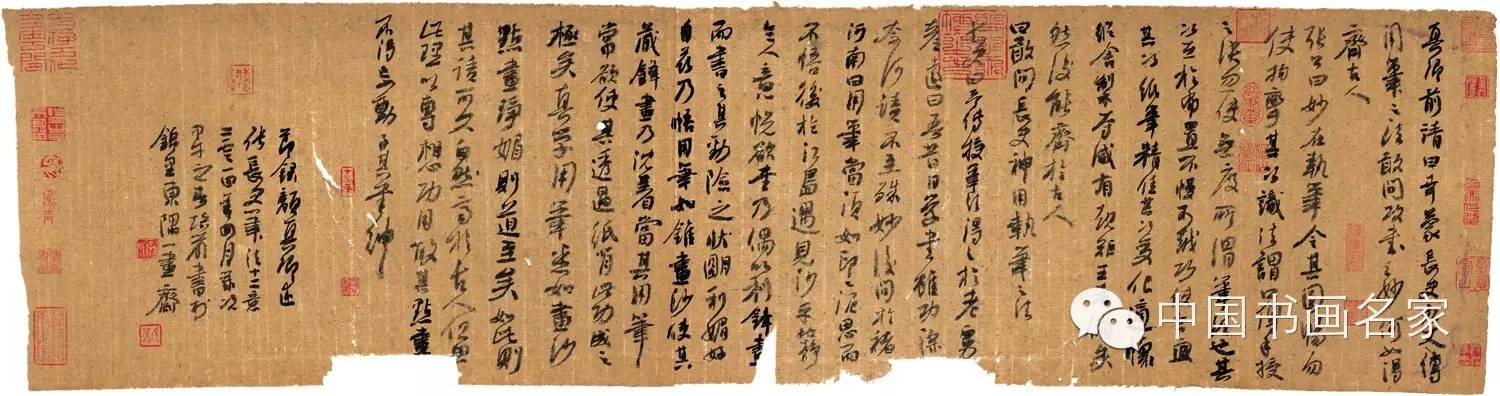 真卿前請曰幸蒙長史九丈傳
用筆之法敢問攻書之妙何如得
齊古人
張公曰妙在執筆令其圓暢勿
使拘攣其次識法謂口傳手授
之訣勿使無度所謂筆法也其
次在於布置不慢不越巧使合宜
其次紙筆精佳其次變化適懷
縱舍掣奪咸有規矩五者備矣
然後能齊於古人
曰敢問長史神用執筆之法
長史曰予傳授筆法得之於老舅
彥遠曰吾昔日學書雖功深
奈何迹不至殊妙後問於褚
河南曰用筆當須如印印泥思而
不悟後於江島遇見沙平地靜
令人意悅欲書乃偶以利鋒畫
而書之其勁險之狀明利媚好
自茲乃悟用筆如錐畫沙使其
藏鋒畫乃沈着當其用筆
常欲使其透過紙背此功成之
極矣真草用筆悉如畫沙
點畫淨媚則道至矣如此則
其迹可久自然齊於古人但思
此理以專想功用故其點畫
不得妄動子其書紳
節錄顏真卿述
張長史筆法十二意
二零一四年四月歲次
甲午之 書於
錦里東隅一畫齋
中国书画名家